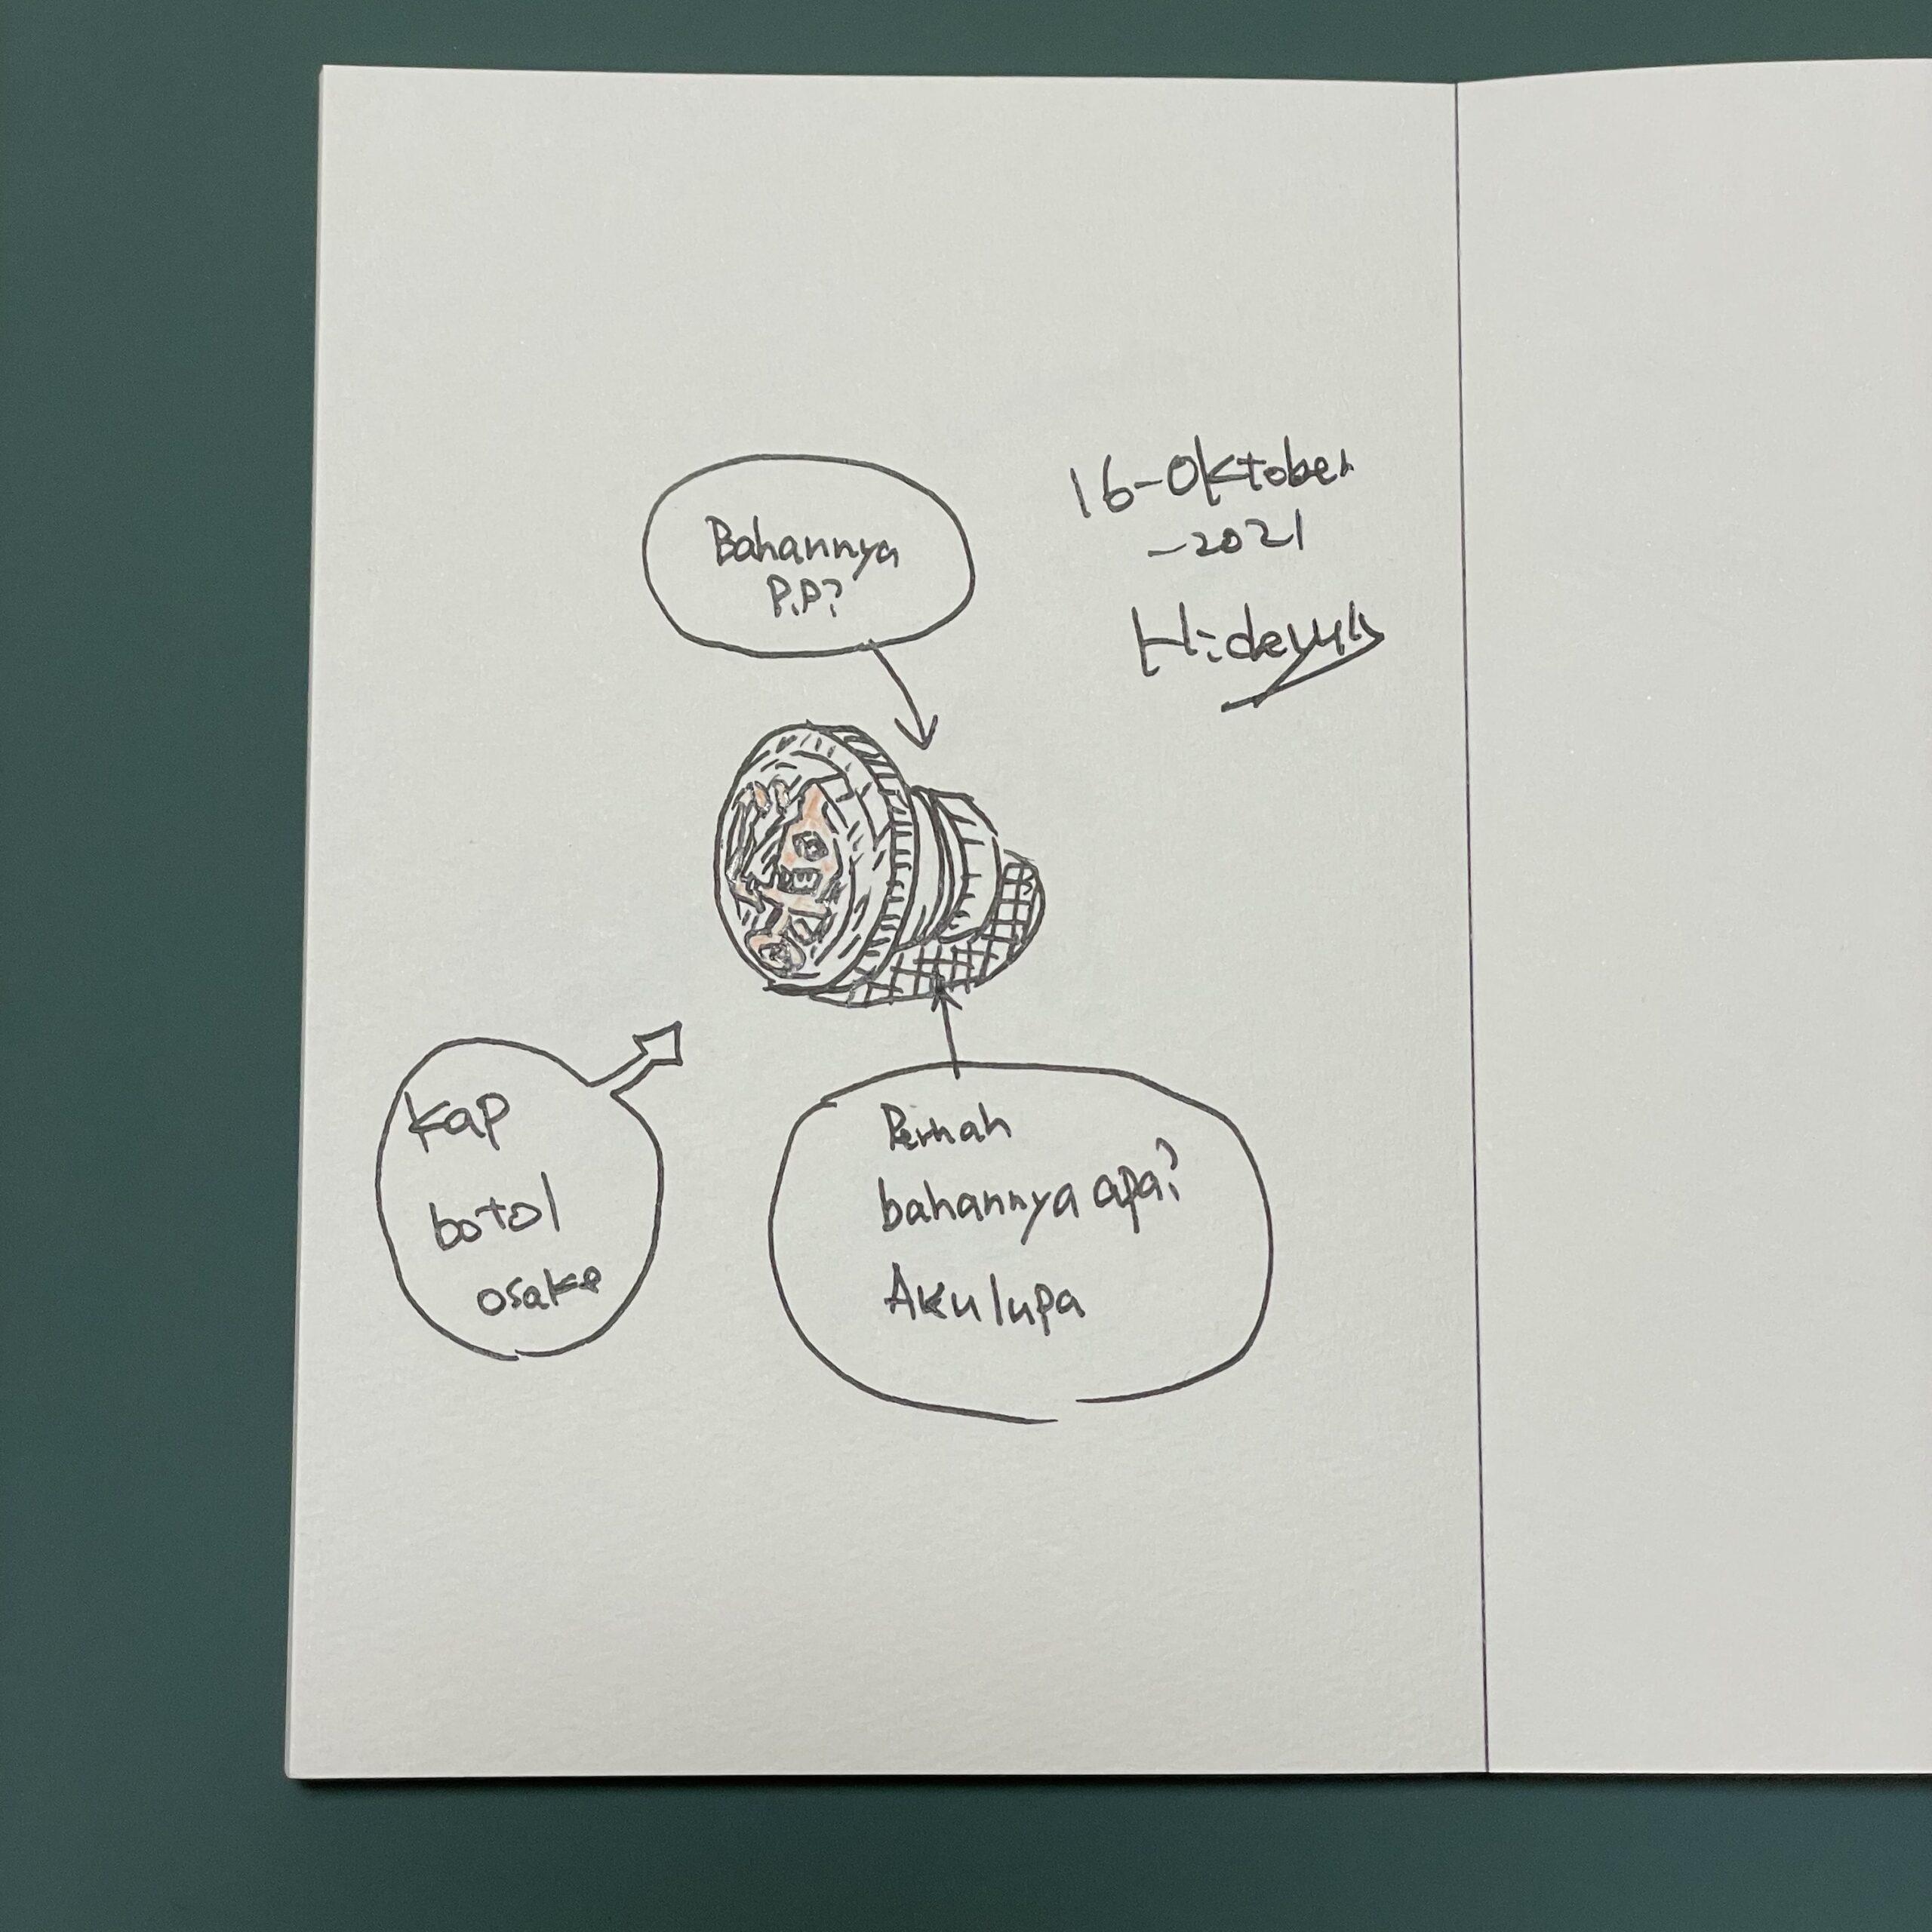 Bahannya
P.P?
16-Oktober
-2021
Hideyuki
kap
botol
osake
Pernah
bahannya apa?
Aku lupa